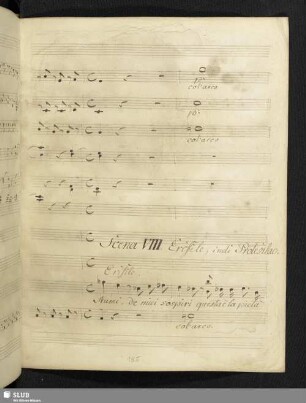 col' arco
pp:
col' arco
Scena VIII Erifile, indi Protesilao.
Erifile
Numi! de miei sospiri questa è la
col' arco
SLUB